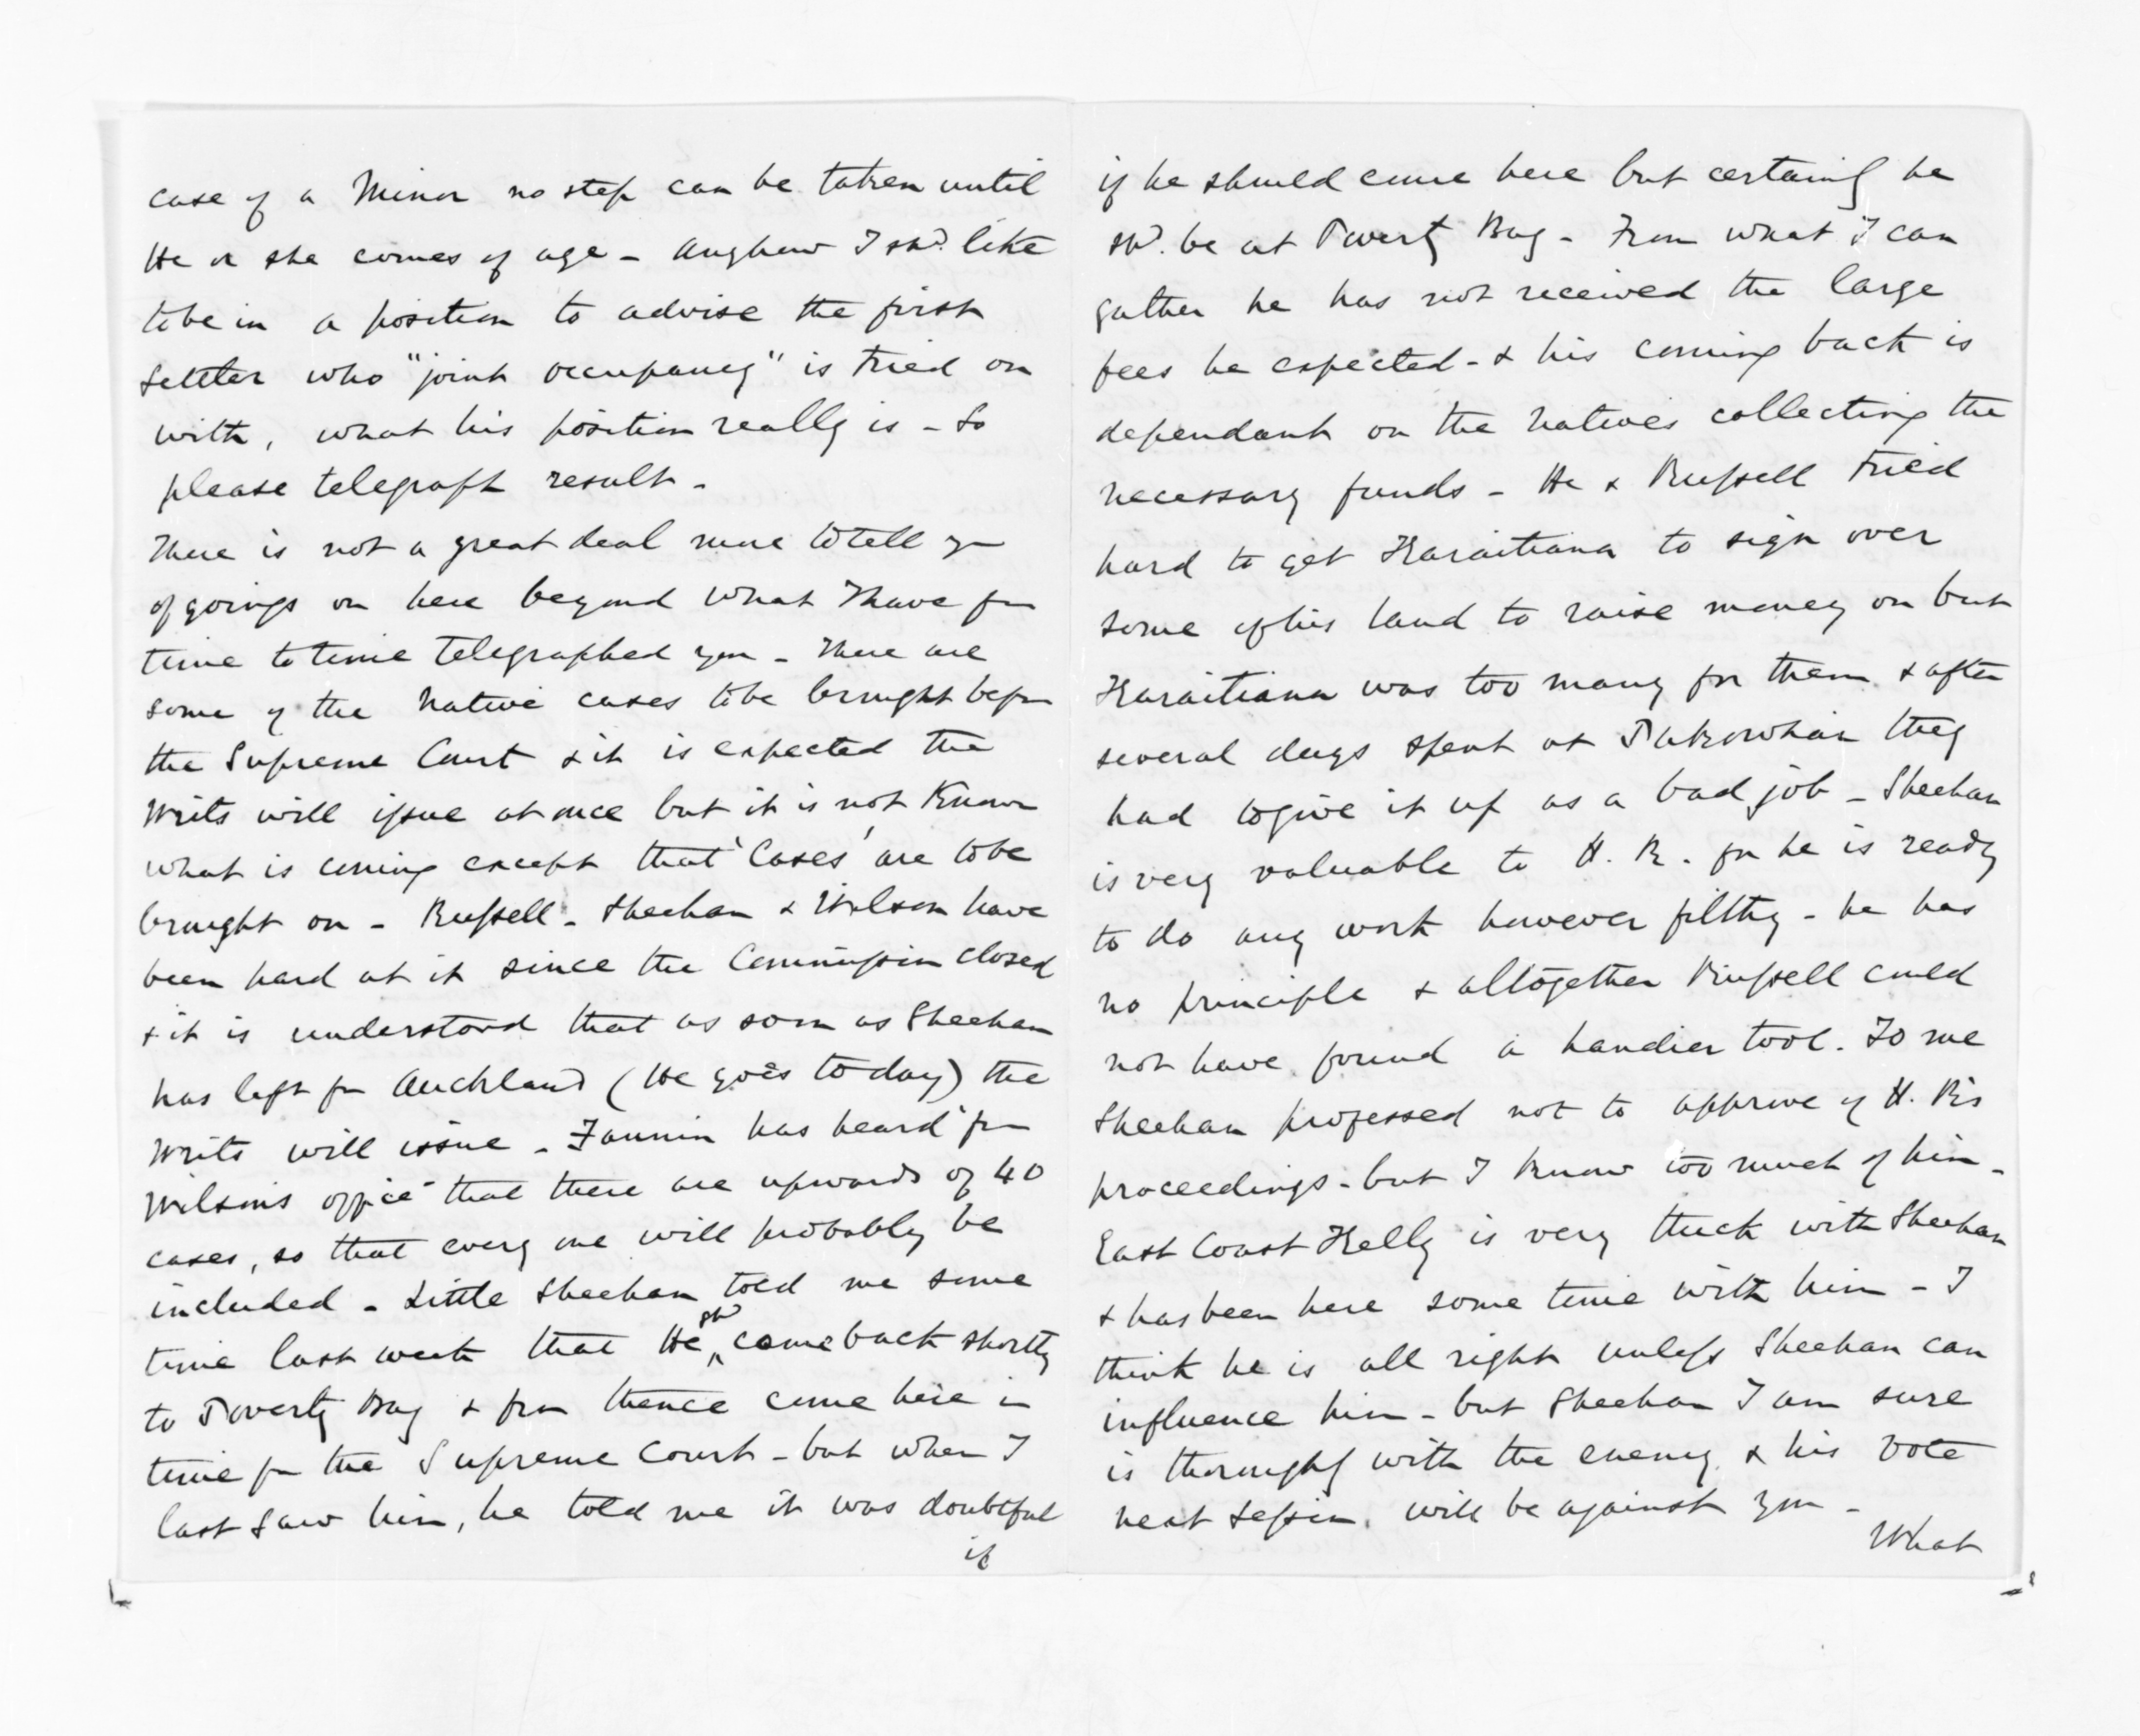 case of a Minor no step can be taken until
He or she comes of age - Anyhow I shd. like
to be in a position to advise the first
Settler who "joint occupancy" is tried on
with, what his position really is - So
please telegraph result -
There is not a great deal more to tell you
of goings on here beyond what I have from
time to time telegraphed you - There are
some of the Native cases to be brought before
the Supreme Court & it is expected the
Writs will issue at once but it is not known
what is coming except that 'Cases' are to be
brought on - Russell - Sheehan & Wilson have
been hard at it since the Commission closed
& it is understood that as soon as Sheehan
has left for Auckland (He goes to day) the
Writs will issue - Fannin has heard from
Wilson's office that there are upwards of 40
cases, so that every one will probably be
included - Little Sheehan told me some
time last week that He shd come back shortly
to Poverty Bay & from thence come here in
time for the Supreme Court - but when I
last saw him, he told me it was doubtful
if
if he should come here but certainly he
shd. be at Poverty Bay - From what I can
gather he has not received the large
fees he expected - & his coming back is
dependant on the Natives collecting the
necessary funds - He & Russell tried
hard to get Karaitiana to sign over
some of his land to raise money on but
Karaitiana was too many for them & after
several days spent at Pakowhai they
had to give it up as a bad job - Sheehan
is very valuable to H. R. for he is ready
to do any work however filthy - he has
no principle & altogether Russell could
not have found a handier tool. To me
Sheehan professed not to approve of H. R's
proceedings - but I know too much of him -
East Coast Kelly is very thick with Sheehan
& has been here some time with him - I
think he is all right unless Sheehan can
influence him - but Sheehan I am sure
is thoroughly with the enemy & his vote
next session will be against you -
What